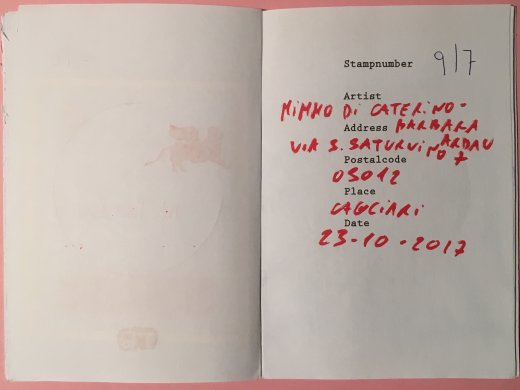 Stampnumber 9/7
Artist
MIMMO DI CATERINO-
Address BARBARA
ARDAU
VIA S. SATURNINO 7
Postalcode
09012
Place
CAGLIARI
Date
23-10-2017